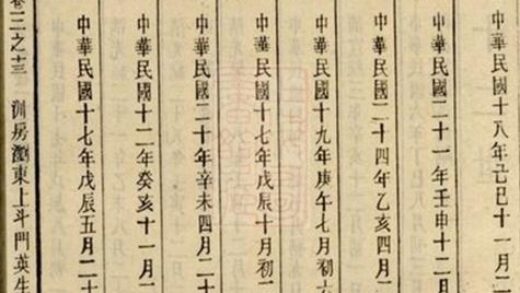 中華民國十八年己巳十一月二
中華民國二十一年壬申十二月
中華民國二十四年乙亥四月二
中華民國十九年庚午七月初六
中華民國十七年戊辰十月初二
中華民國二十年辛未四月二十
中華民國十二年癸亥十一月二
中華民國十七年戊辰五月二十
卷二之十三 洲房瀏東上斗門英生